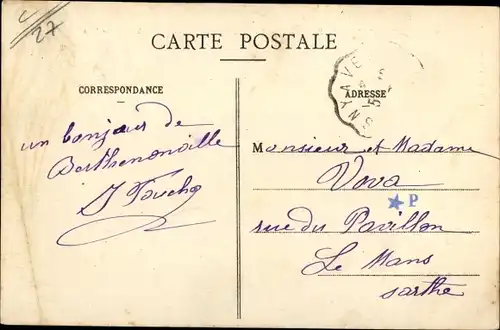 27
CARTE POSTALE
CORRESPONDANCE
ADRESSE
un bonjour de
Berthenonville
Monsieur et Madame
Vova
P
rue du Pavillon
Le Mans
sarthe